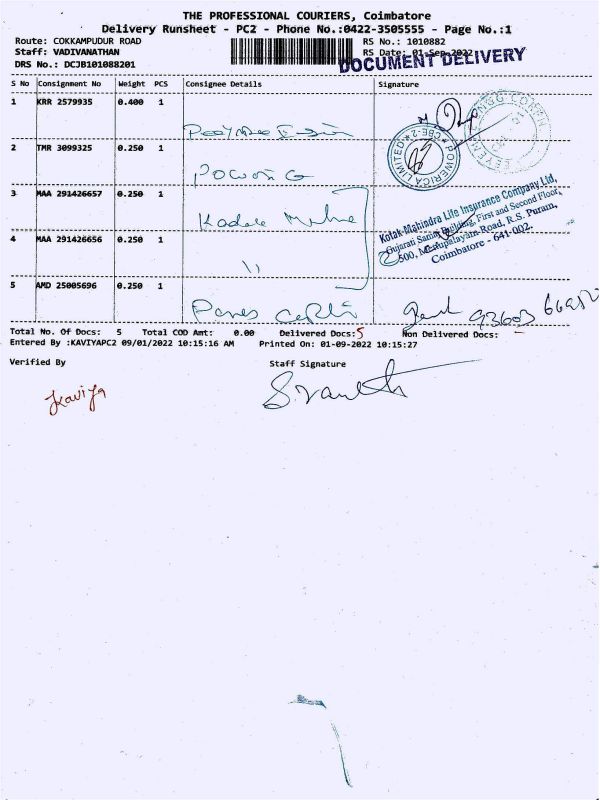 THE PROFESSIONAL COURIERS, Coimbatore
Delivery Runsheet - PC2 - Phone No.:0422-3505555 - Page No.:1
Route: COKKAMPUDUR ROAD
RS No.: 1010882
Staff: VADIVANATHAN
RS Date: 01-Sep-2022
DRS No.: DCJB101088201
DOCUMENT DELIVERY
S No Consignment No Weight PCS Consignee Details Signature
1 KRR 2579935 0.400 1
2 TMR 3099325 0.250 1
POWERICA LIMITED CBE-2
3 MAA 291426657 0.250 1
Kotak Mahindra Life Insurance Company Ltd,
Gujarati Samaj Building, First and Second Floor,
500, Mettupalayam Road, R.S. Puram,
Coimbatore - 641 002.
4 MAA 291426656 0.250 1
"
5 AMD 25005696 0.250 1
93603 66952
Total No. Of Docs: 5 Total COD Amt: 0.00 Delivered Docs: 5 Non Delivered Docs: -
Entered By :KAVIYAPC2 09/01/2022 10:15:16 AM Printed On: 01-09-2022 10:15:27
Verified By Staff Signature
Kaviya